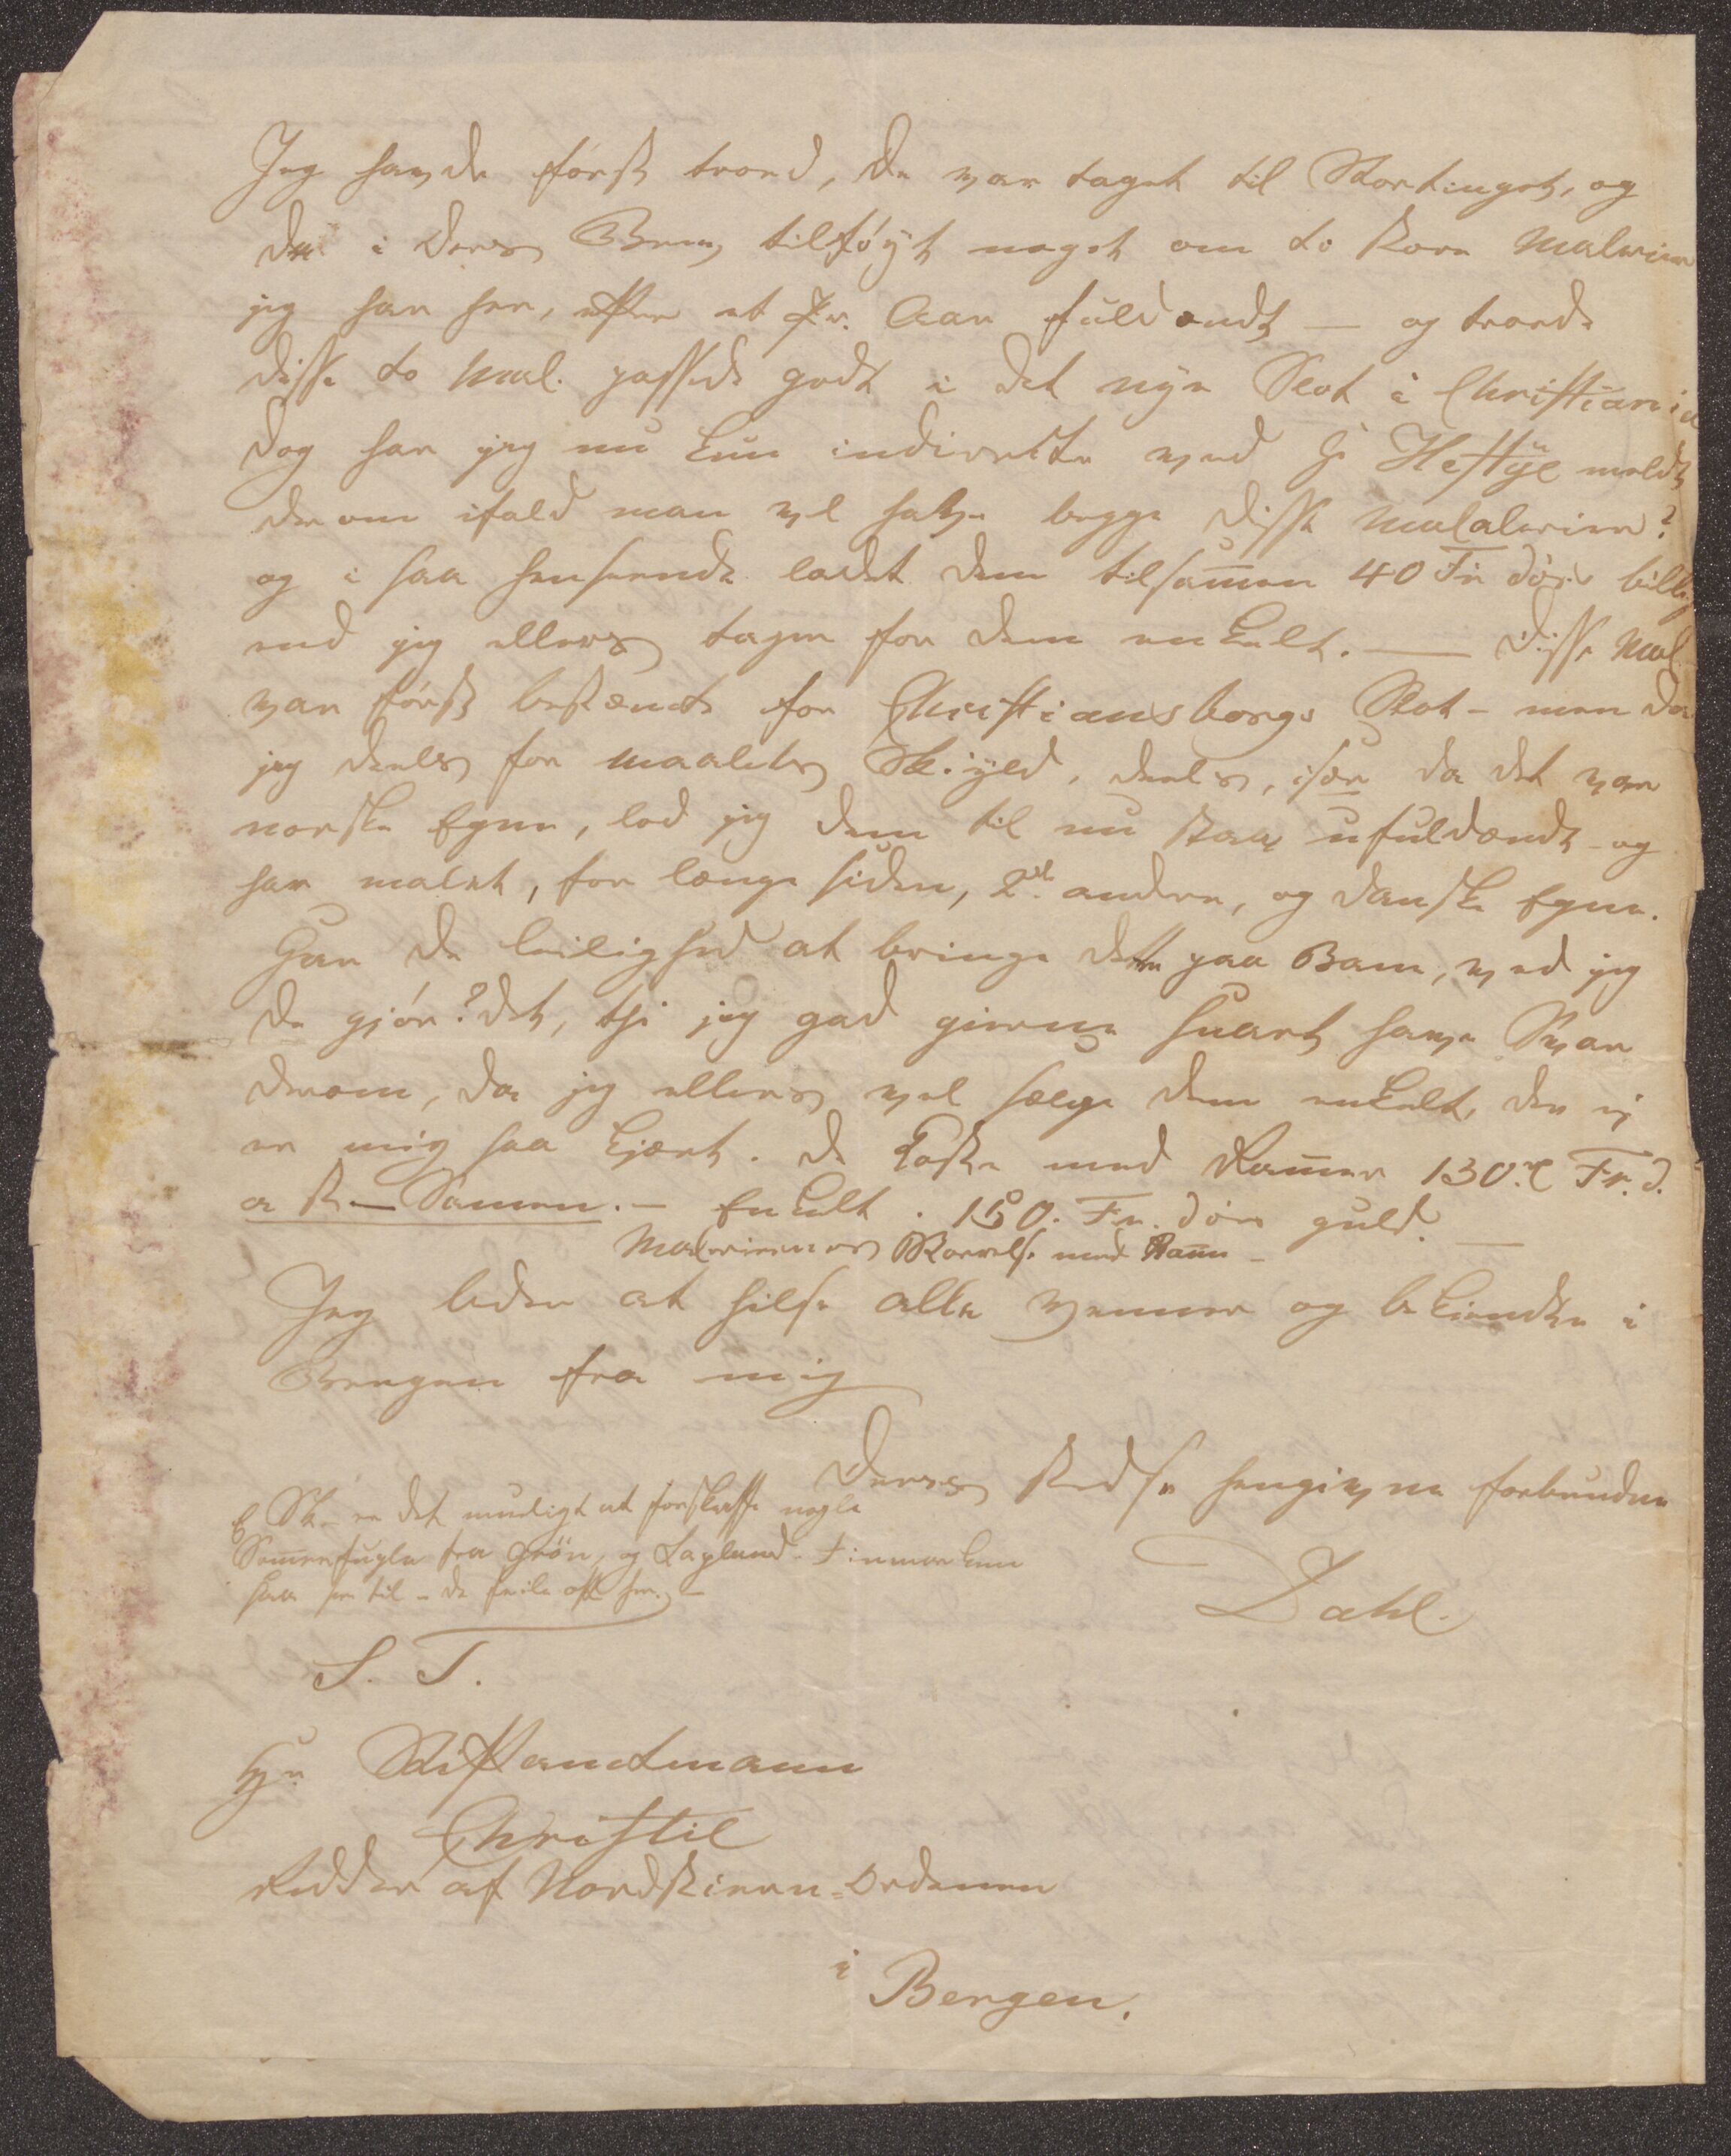 Jeg havde først troed, De var taget til Stortinget, og
der i Deres Brev tilføyt noget om to store Malerier
jeg har her, efter et Pr. Aar fuldendt — og troede
disse to Mal. passede godt i det nye Slot i Christiania
dog har jeg nu kun indirekte ved H: Heftÿe meldt
derom ifald man vil have begge disse Malalerier?
og i saa henseende ladet dem tilsam̄en 40 Fr dör billig
end jeg ellers tager for dem enkelt. — Disse Mal.
var først bestemte for Christiansborgs Slot – men da
jeg deels for Maalets Skÿld, deels, især da det var
norske Egne, lod jeg dem til nu staae ufuldendt – og
har malet, for længe siden, 2de andre, og danske Egne.
Har De leilighed at bringe dette paa Bane, ved jeg
De gjør? det, thi jeg gad gierne snart have Svar
derom, da jeg ellers vel sælge dem enkelt, der ej
er mig saa kjært. De koste med Ram̄er 130 Fr. d.
a St— Samen. — Enkelt . 150. Fr. dör guld. —
Maleriernes Størrelse med Ram̄e –
Jeg beder at hilse alle Venner og bekiendte i
Bergen fra mig
Deres stedse hengivne forbundne
Dahl.
E Sk. er det mueligt at forskaffe nogle
Som̄erfugle fra Grön, og Lapland. Finmarken
saa her til – de feile ofte her. —
S. T.
Hr. Stiftamtmann
Christie
Ridder af Nordstieren-Ordenen
i Bergen.